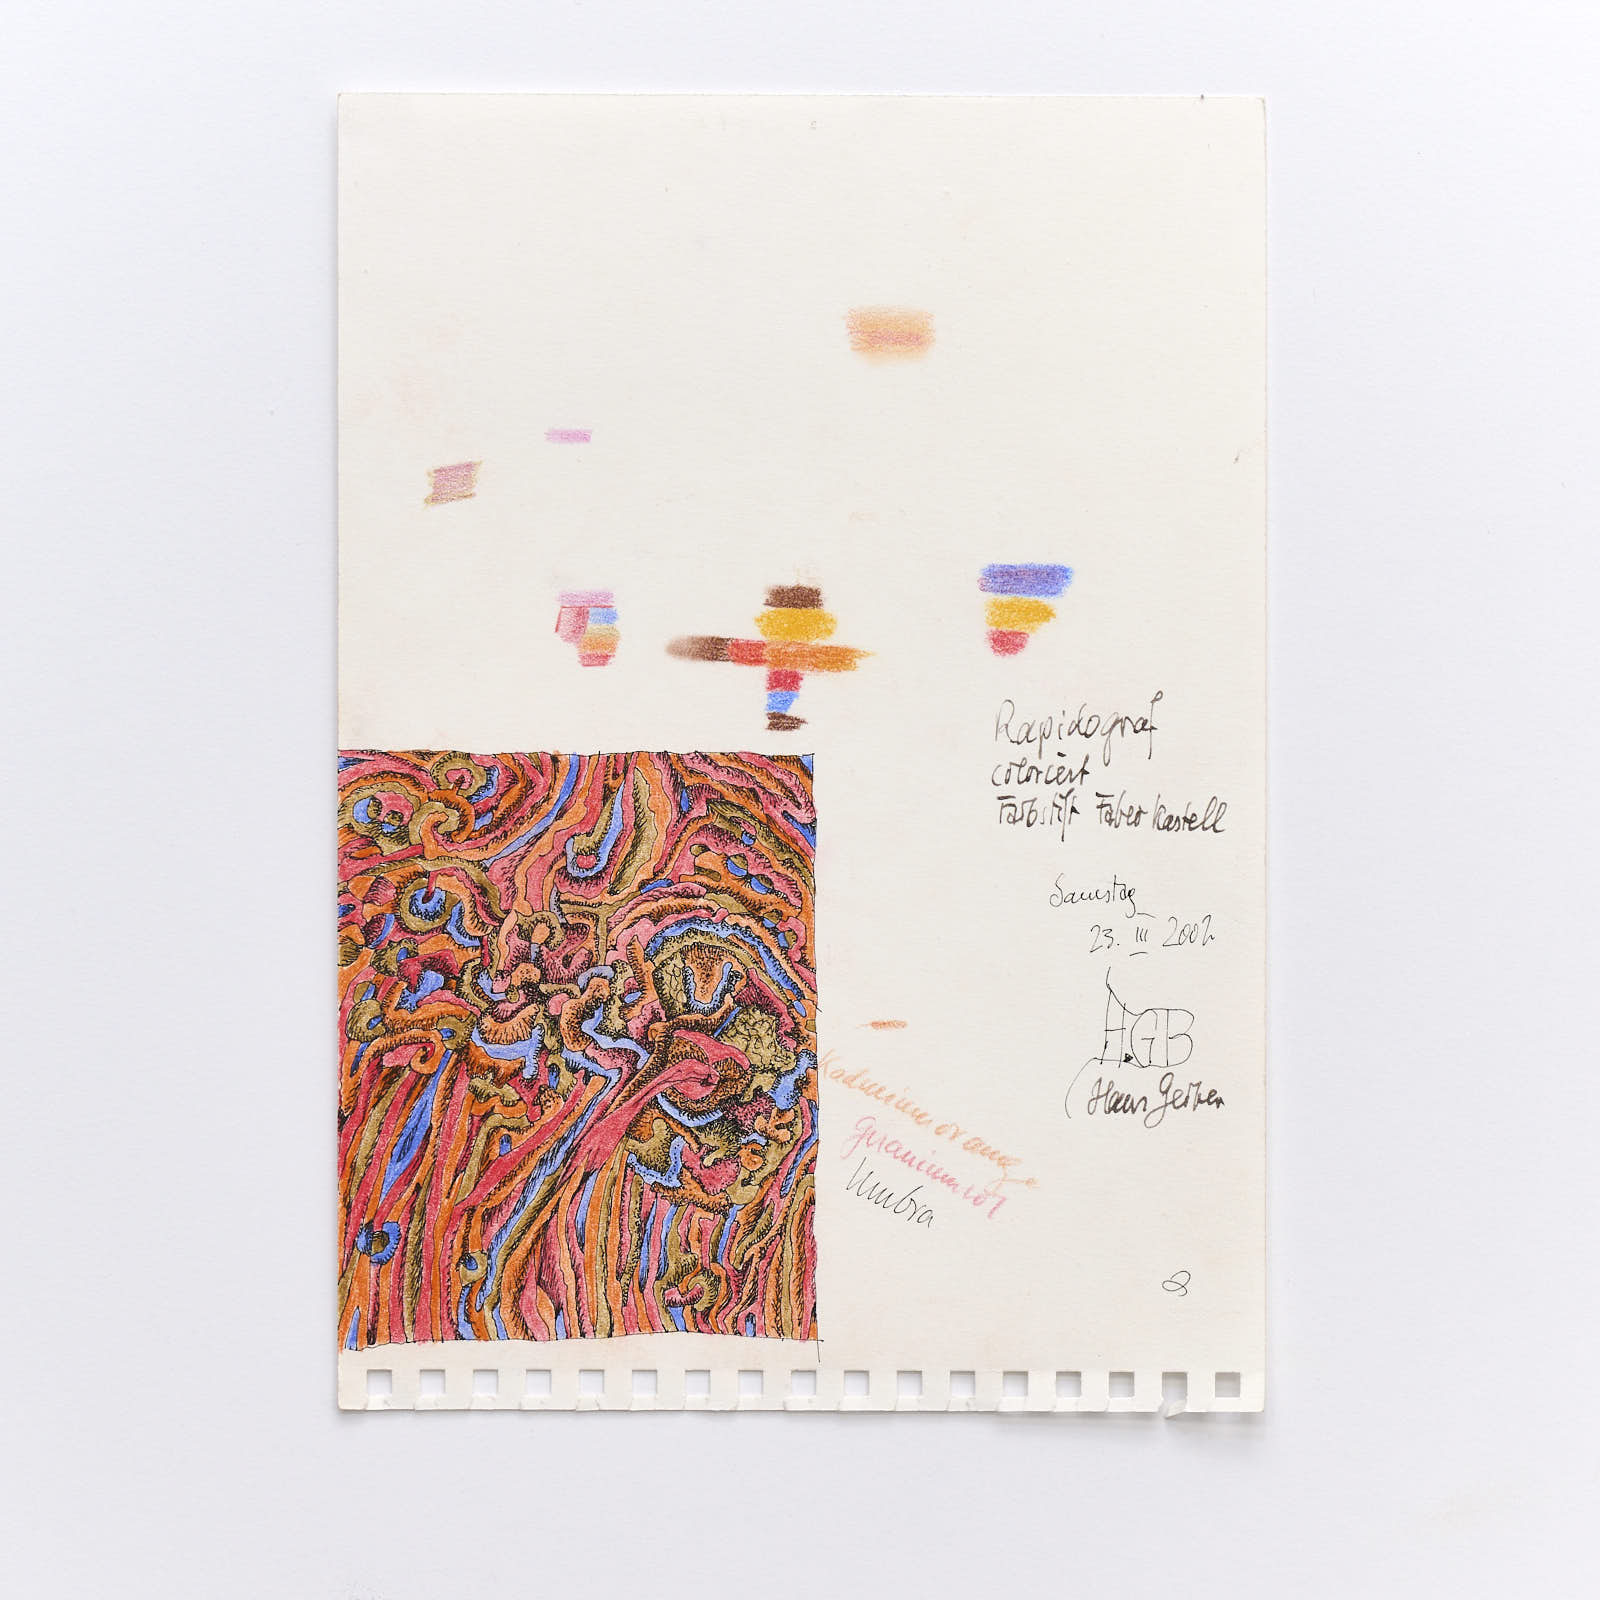 Rapidograf
coloriert
Farbstift Faber Kastell
Samstag
23. III 2002
HGB
(Hans Gerber
Kadmiumorange
Geraniumrot
Umbra